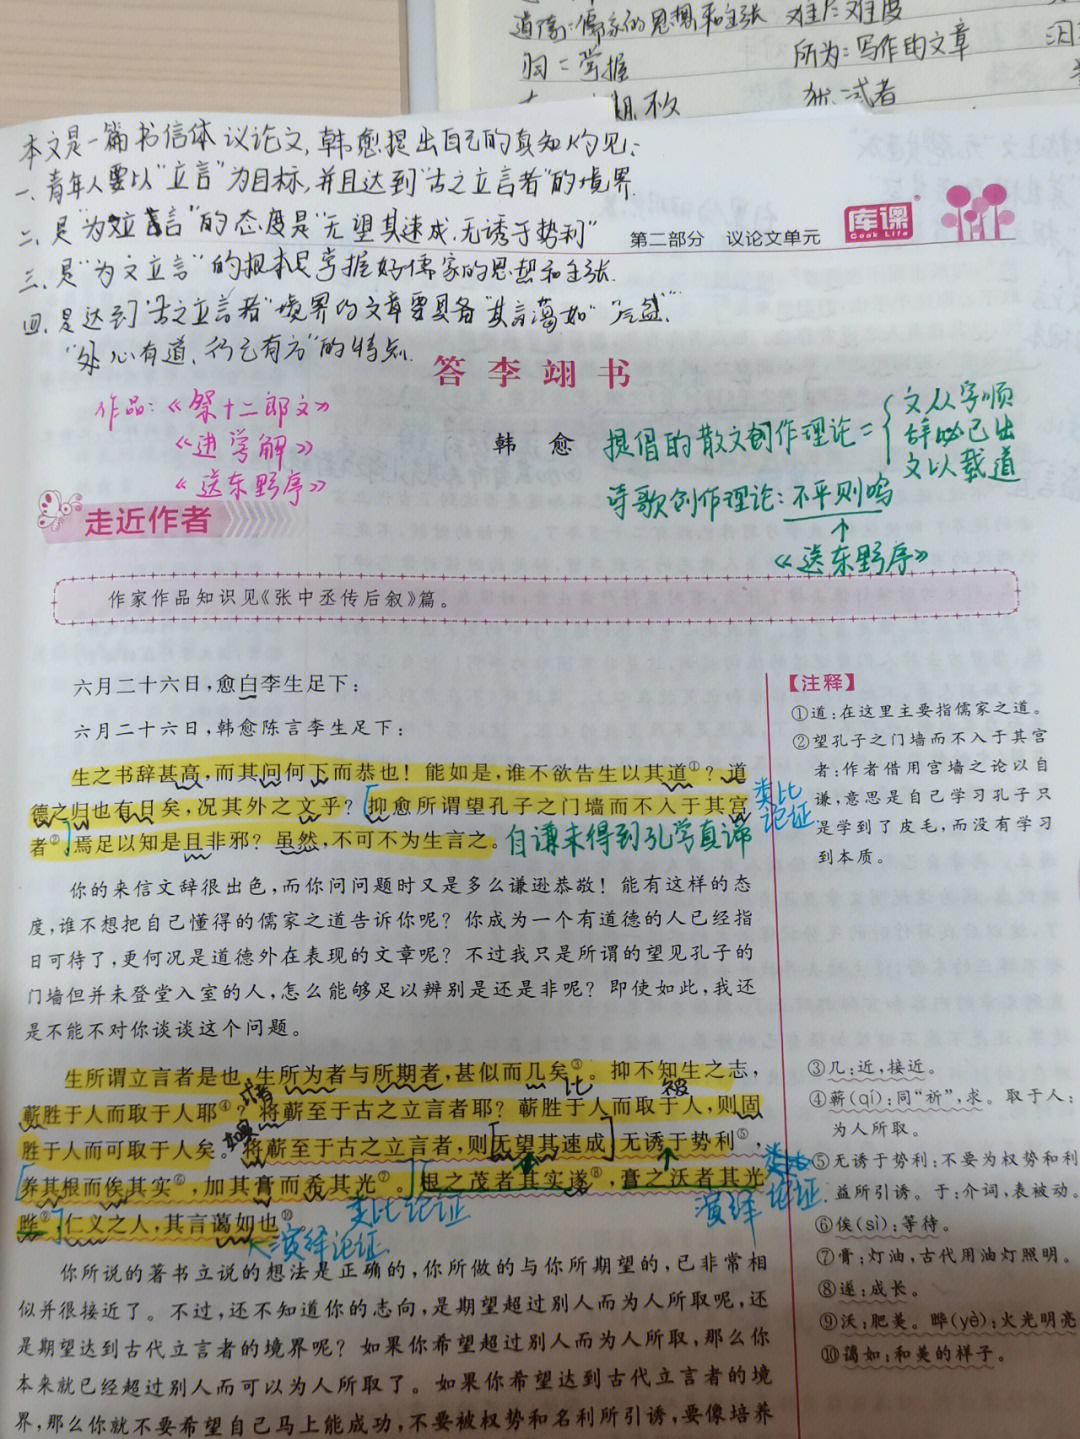 道:儒家的思想和主张 难尽:难度
所为:写作的文章
掌握
者
本文是一篇书信体议论文,韩愈提出自己的真知灼见:
一、青年人要以“立言”为目标,并且达到“古之立言者”的境界
二、是“为文立言”的态度是“无望其速成、无诱于势利”
第二部分 议论文单元
库课
Cook Life
三、是“为文立言”的根本是掌握好儒家的思想和主张.
四、是达到“古之立言者”境界的文章要具备“其言蔼如”“气盛”
“处心有道、行己有方”的特点.
答李翊书
作品:《祭十二郎文》
《进学解》
《送东野序》
韩 愈
提倡的散文创作理论=
文从字顺
辞必己出
文以载道
诗歌创作理论:不平则鸣
《送东野序》
走近作者
作家作品知识见《张中丞传后叙》篇。
六月二十六日,愈白李生足下:
六月二十六日,韩愈陈言李生足下:
生之书辞甚高,而其问何下而恭也!能如是,谁不欲告生以其道①?道
德之归也有日矣,况其外之文乎?抑愈所谓望孔子之门墙而不入于其宫
者②,焉足以知是且非邪?虽然,不可不为生言之。
类比
论证
自谦未得到孔学真谛
你的来信文辞很出色,而你问问题时又是多么谦逊恭敬!能有这样的态
度,谁不想把自己懂得的儒家之道告诉你呢?你成为一个有道德的人已经指
日可待了,更何况是道德外在表现的文章呢?不过我只是所谓的望见孔子的
门墙但并未登堂入室的人,怎么能够足以辨别是还是非呢?即使如此,我还
是不能不对你谈谈这个问题。
生所谓立言者是也,生所为者与所期者,甚似而几矣③。抑不知生之志,
或者
比
被
蕲胜于人而取于人耶④?将蕲至于古之立言者耶?蕲胜于人而取于人,则固
胜于人而可取于人矣。将蕲至于古之立言者,则无望其速成,无诱于势利⑤,
如果
养其根而俟其实⑥,加其膏而希其光⑦。根之茂者其实遂⑧,膏之沃者其光
晔⑨,仁义之人,其言蔼如也⑩。
类比论证
演绎论证
演绎
类比
论证
你所说的著书立说的想法是正确的,你所做的与你所期望的,已非常相
似并很接近了。不过,还不知道你的志向,是期望超过别人而为人所取呢,还
是期望达到古代立言者的境界呢?如果你希望超过别人而为人所取,那么你
本来就已经超过别人而可以为人所取了。如果你希望达到古代立言者的境
界,那么你就不要希望自己马上能成功,不要被权势和名利所引诱,要像培养
【注释】
①道:在这里主要指儒家之道。
②望孔子之门墙而不入于其宫
者:作者借用宫墙之论以自
谦,意思是自己学习孔子只
是学到了皮毛,而没有学习
到本质。
③几:近,接近。
④蕲(qí):同“祈”,求。取于人:
为人所取。
⑤无诱于势利:不要为权势和利
益所引诱。于:介词,表被动。
⑥俟(sì):等待。
⑦膏:灯油,古代用油灯照明。
⑧遂:成长。
⑨沃:肥美。晔(yè):火光明亮
⑩蔼如:和美的样子。